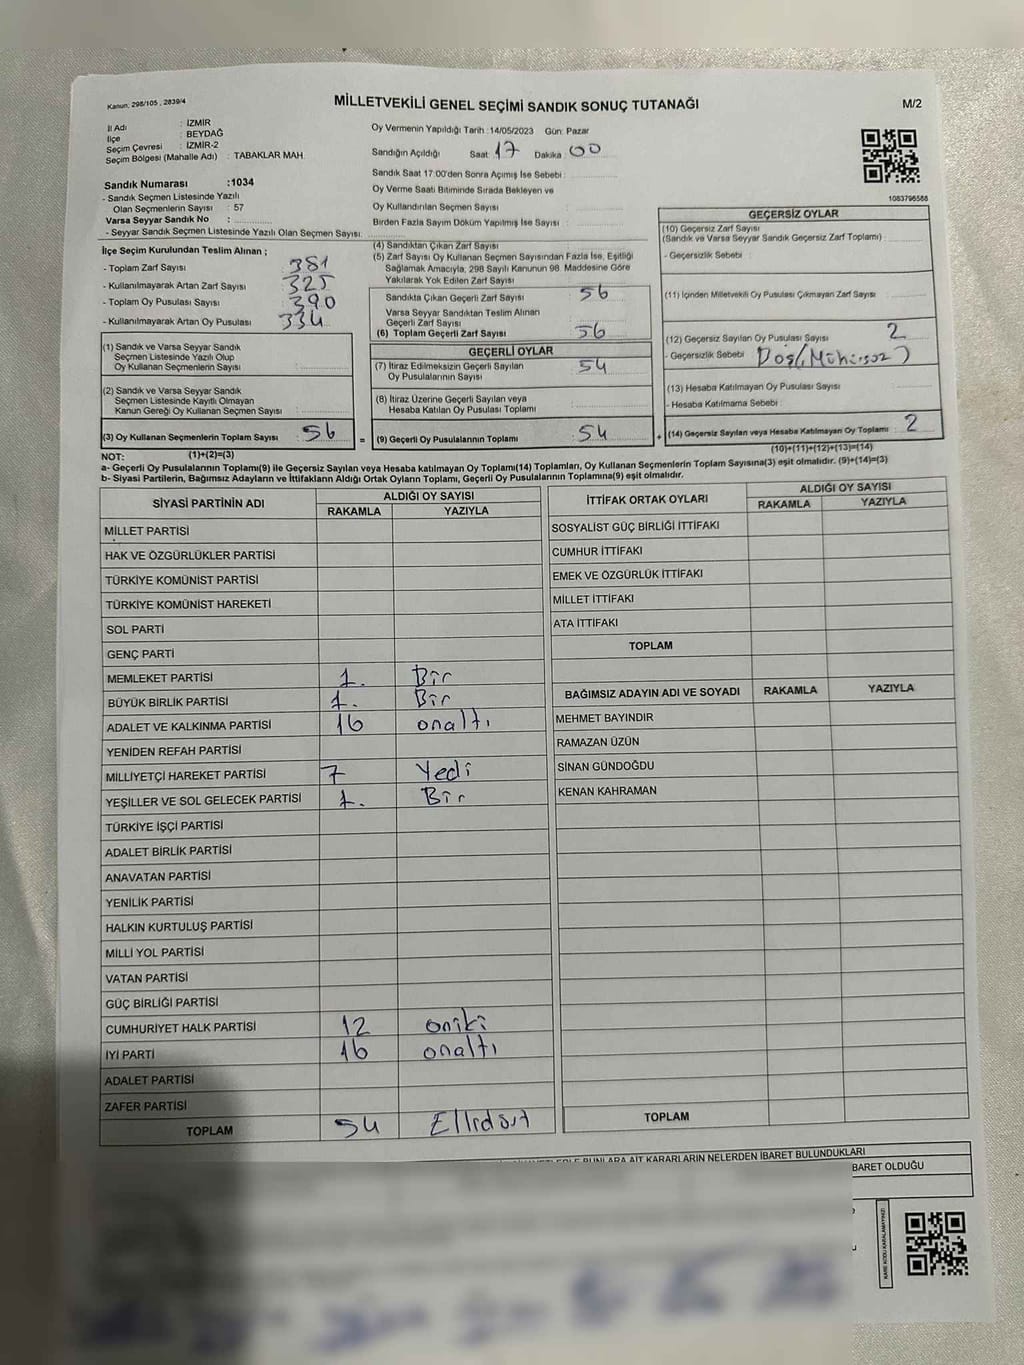 Kanun: 298/105 , 2839/4
MİLLETVEKİLİ GENEL SEÇİMİ SANDIK SONUÇ TUTANAĞI
M/2
İl Adı : İZMİR
İlçe : BEYDAĞ
Seçim Çevresi : İZMİR-2
Seçim Bölgesi (Mahalle Adı) : TABAKLAR MAH.
Oy Vermenin Yapıldığı Tarih : 14/05/2023 Gün: Pazar
Sandığın Açıldığı Saat: 17 Dakika: 00
Sandık Saat 17:00'den Sonra Açımış İse Sebebi :
Oy Verme Saati Bitiminde Sırada Bekleyen ve
Oy Kullandırılan Seçmen Sayısı :
Birden Fazla Sayım Döküm Yapılmış İse Sayısı :
1083796568
Sandık Numarası :1034
- Sandık Seçmen Listesinde Yazılı
Olan Seçmenlerin Sayısı : 57
Varsa Seyyar Sandık No :
- Seyyar Sandık Listesinde Yazılı Olan Seçmen Sayısı:
İlçe Seçim Kurulundan Teslim Alınan ;
- Toplam Zarf Sayısı : 381
- Kullanılmayarak Artan Zarf Sayısı : 325
- Toplam Oy Pusulası Sayısı : 390
- Kullanılmayarak Artan Oy Pusulası : 334
(1) Sandık ve Varsa Seyyar Sandık
Seçmen Listesinde Yazılı Olup
Oy Kullanan Seçmenlerin Sayısı :
(2) Sandık ve Varsa Seyyar Sandık
Seçmen Listesinde Kayıtlı Olmayan
Kanun Gereği Oy Kullanan Seçmen Sayısı :
(3) Oy Kullanan Seçmenlerin Toplam Sayısı : 56
(1)+(2)=(3)
(4) Sandıktan Çıkan Zarf Sayısı
(5) Zarf Sayısı Oy Kullanan Seçmen Sayısından Fazla İse, Eşitliği
Sağlamak Amacıyla, 298 Sayılı Kanunun 98. Maddesine Göre
Yakılarak Yok Edilen Zarf Sayısı
Sandıkta Çıkan Geçerli Zarf Sayısı : 56
Varsa Seyyar Sandıktan Teslim Alınan
Geçerli Zarf Sayısı
(6) Toplam Geçerli Zarf Sayısı : 56
GEÇERLİ OYLAR
(7) İtiraz Edilmeksizin Geçerli Sayılan
Oy Pusulalarının Sayısı : 54
(8) İtiraz Üzerine Geçerli Sayılan veya
Hesaba Katılan Oy Pusulası Toplamı :
= (9) Geçerli Oy Pusulalarının Toplamı : 54
GEÇERSİZ OYLAR
(10) Geçersiz Zarf Sayısı
(Sandık ve Varsa Seyyar Sandık Geçersiz Zarf Toplamı) :
- Geçersizlik Sebebi :
(11) İçinden Milletvekili Oy Pusulası Çıkmayan Zarf Sayısı :
(12) Geçersiz Sayılan Oy Pusulası Sayısı : 2
- Geçersizlik Sebebi : Boş(Mühürsüz)
(13) Hesaba Katılmayan Oy Pusulası Sayısı :
- Hesaba Katılmama Sebebi :
+ (14) Geçersiz Sayılan veya Hesaba Katılmayan Oy Toplamı : 2
(10)+(11)+(12)+(13)=(14)
NOT:
a- Geçerli Oy Pusulalarının Toplamı(9) ile Geçersiz Sayılan veya Hesaba katılmayan Oy Toplamı(14) Toplamları, Oy Kullanan Seçmenlerin Toplam Sayısına(3) eşit olmalıdır. (9)+(14)=(3)
b- Siyasi Partilerin, Bağımsız Adayların ve İttifakların Aldığı Ortak Oyların Toplamı, Geçerli Oy Pusulalarının Toplamına(9) eşit olmalıdır.
SİYASİ PARTİNİN ADI ALDIĞI OY SAYISI
RAKAMLA YAZIYLA
MİLLET PARTİSİ
HAK VE ÖZGÜRLÜKLER PARTİSİ
TÜRKİYE KOMÜNİST PARTİSİ
TÜRKİYE KOMÜNİST HAREKETİ
SOL PARTİ
GENÇ PARTİ
MEMLEKET PARTİSİ 1. Bir
BÜYÜK BİRLİK PARTİSİ 1. Bir
ADALET VE KALKINMA PARTİSİ 16 onaltı
YENİDEN REFAH PARTİSİ
MİLLİYETÇİ HAREKET PARTİSİ 7 Yedi
YEŞİLLER VE SOL GELECEK PARTİSİ 1. Bir
TÜRKİYE İŞÇİ PARTİSİ
ADALET BİRLİK PARTİSİ
ANAVATAN PARTİSİ
YENİLİK PARTİSİ
HALKIN KURTULUŞ PARTİSİ
MİLLİ YOL PARTİSİ
VATAN PARTİSİ
GÜÇ BİRLİĞİ PARTİSİ
CUMHURİYET HALK PARTİSİ 12 oniki
İYİ PARTİ 16 onaltı
ADALET PARTİSİ
ZAFER PARTİSİ
TOPLAM 54 Ellidört
İTTİFAK ORTAK OYLARI ALDIĞI OY SAYISI
RAKAMLA YAZIYLA
SOSYALİST GÜÇ BİRLİĞİ İTTİFAKI
CUMHUR İTTİFAKI
EMEK VE ÖZGÜRLÜK İTTİFAKI
MİLLET İTTİFAKI
ATA İTTİFAKI
TOPLAM
BAĞIMSIZ ADAYIN ADI VE SOYADI RAKAMLA YAZIYLA
MEHMET BAYINDIR
RAMAZAN ÜZÜN
SİNAN GÜNDOĞDU
KENAN KAHRAMAN
TOPLAM
BUNLARA AİT KARARLARIN NELERDEN İBARET BULUNDUKLARI
BARET OLDUĞU
KARE KODU KARALAMAYINIZ!